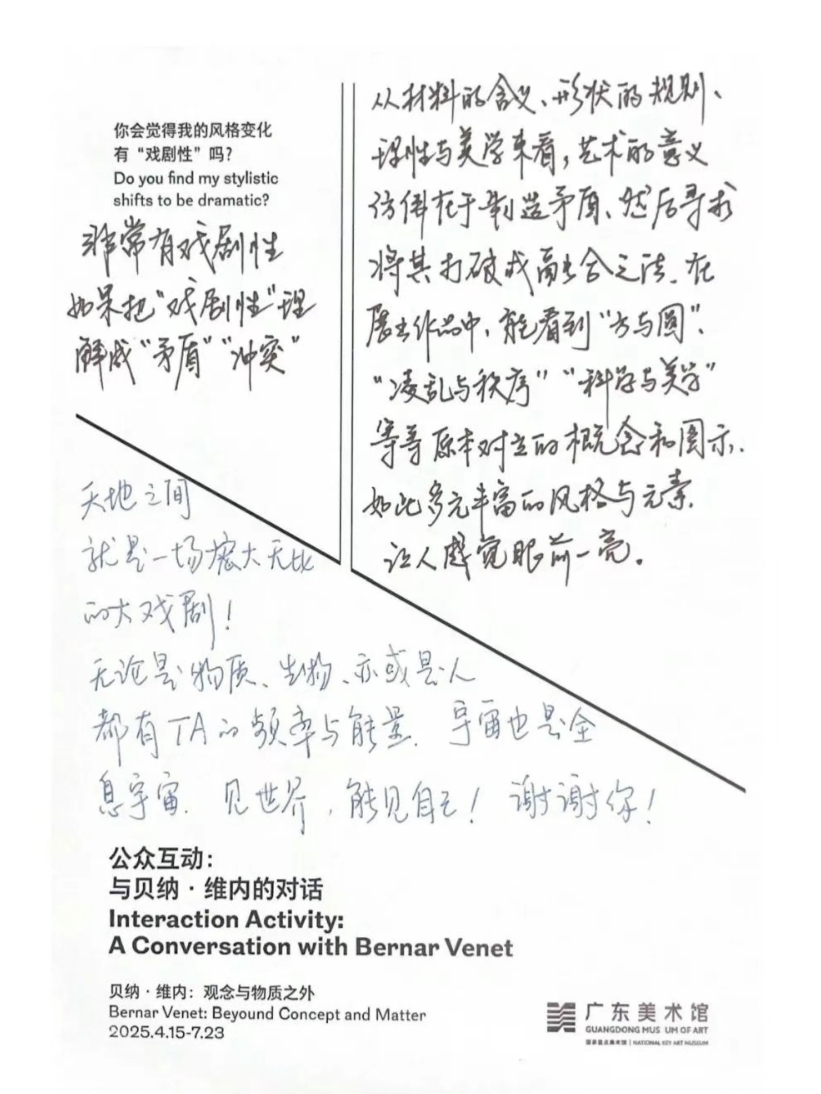 你会觉得我的风格变化
有“戏剧性”吗?
Do you find my stylistic
shifts to be dramatic?
非常有戏剧性
如果把“戏剧性”理
解成“矛盾”“冲突”
从材料的含义、形状的规则、
理性与美学来看,艺术的意义
仿佛在于制造矛盾、然后寻求
将其打破或融合之法.在
展出作品中,能看到“方与圆”、
“凌乱与秩序”“科学与美学”
等等原本对立的概念和图示.
如此多元丰富的风格与元素.
让人感觉眼前一亮。
天地之间
就是一场宏大无比
的大戏剧!
无论是物质、生物、亦或是人
都有TA的频率与能量. 宇宙也是全
息宇宙. 见世界,能见自己! 谢谢你!
公众互动:
与贝纳·维内的对话
Interaction Activity:
A Conversation with Bernar Venet
贝纳·维内:观念与物质之外
Bernar Venet: Beyound Concept and Matter
2025.4.15-7.23
广东美术馆
GUANGDONG MUS UM OF ART
国家重点美术馆 | NATIONAL KEY ART MUSEUM